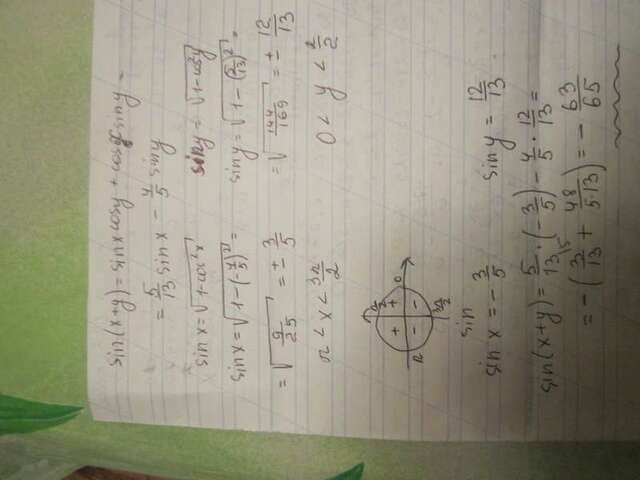 sin(x+y) = sinx cosy + cosx siny =
= 5/13 sin x - 4/5 siny
sin x = √(1-cos²x) siny = √(1-cos²y)
sin x = √(1-(-4/5)²) = siny = √(1-(5/13)²) =
= √(9/25) = ± 3/5 = √(144/169) = ± 12/13
π < x < 3π/2 0 < y < π/2
π/2
+ + 0
π - -
3π/2
sin
sin x = - 3/5 sin y = 12/13
sin(x+y) = 5/13 · (-3/5) - 4/5 · 12/13 =
= - (3/13 + 48/5·13) = - 63/65